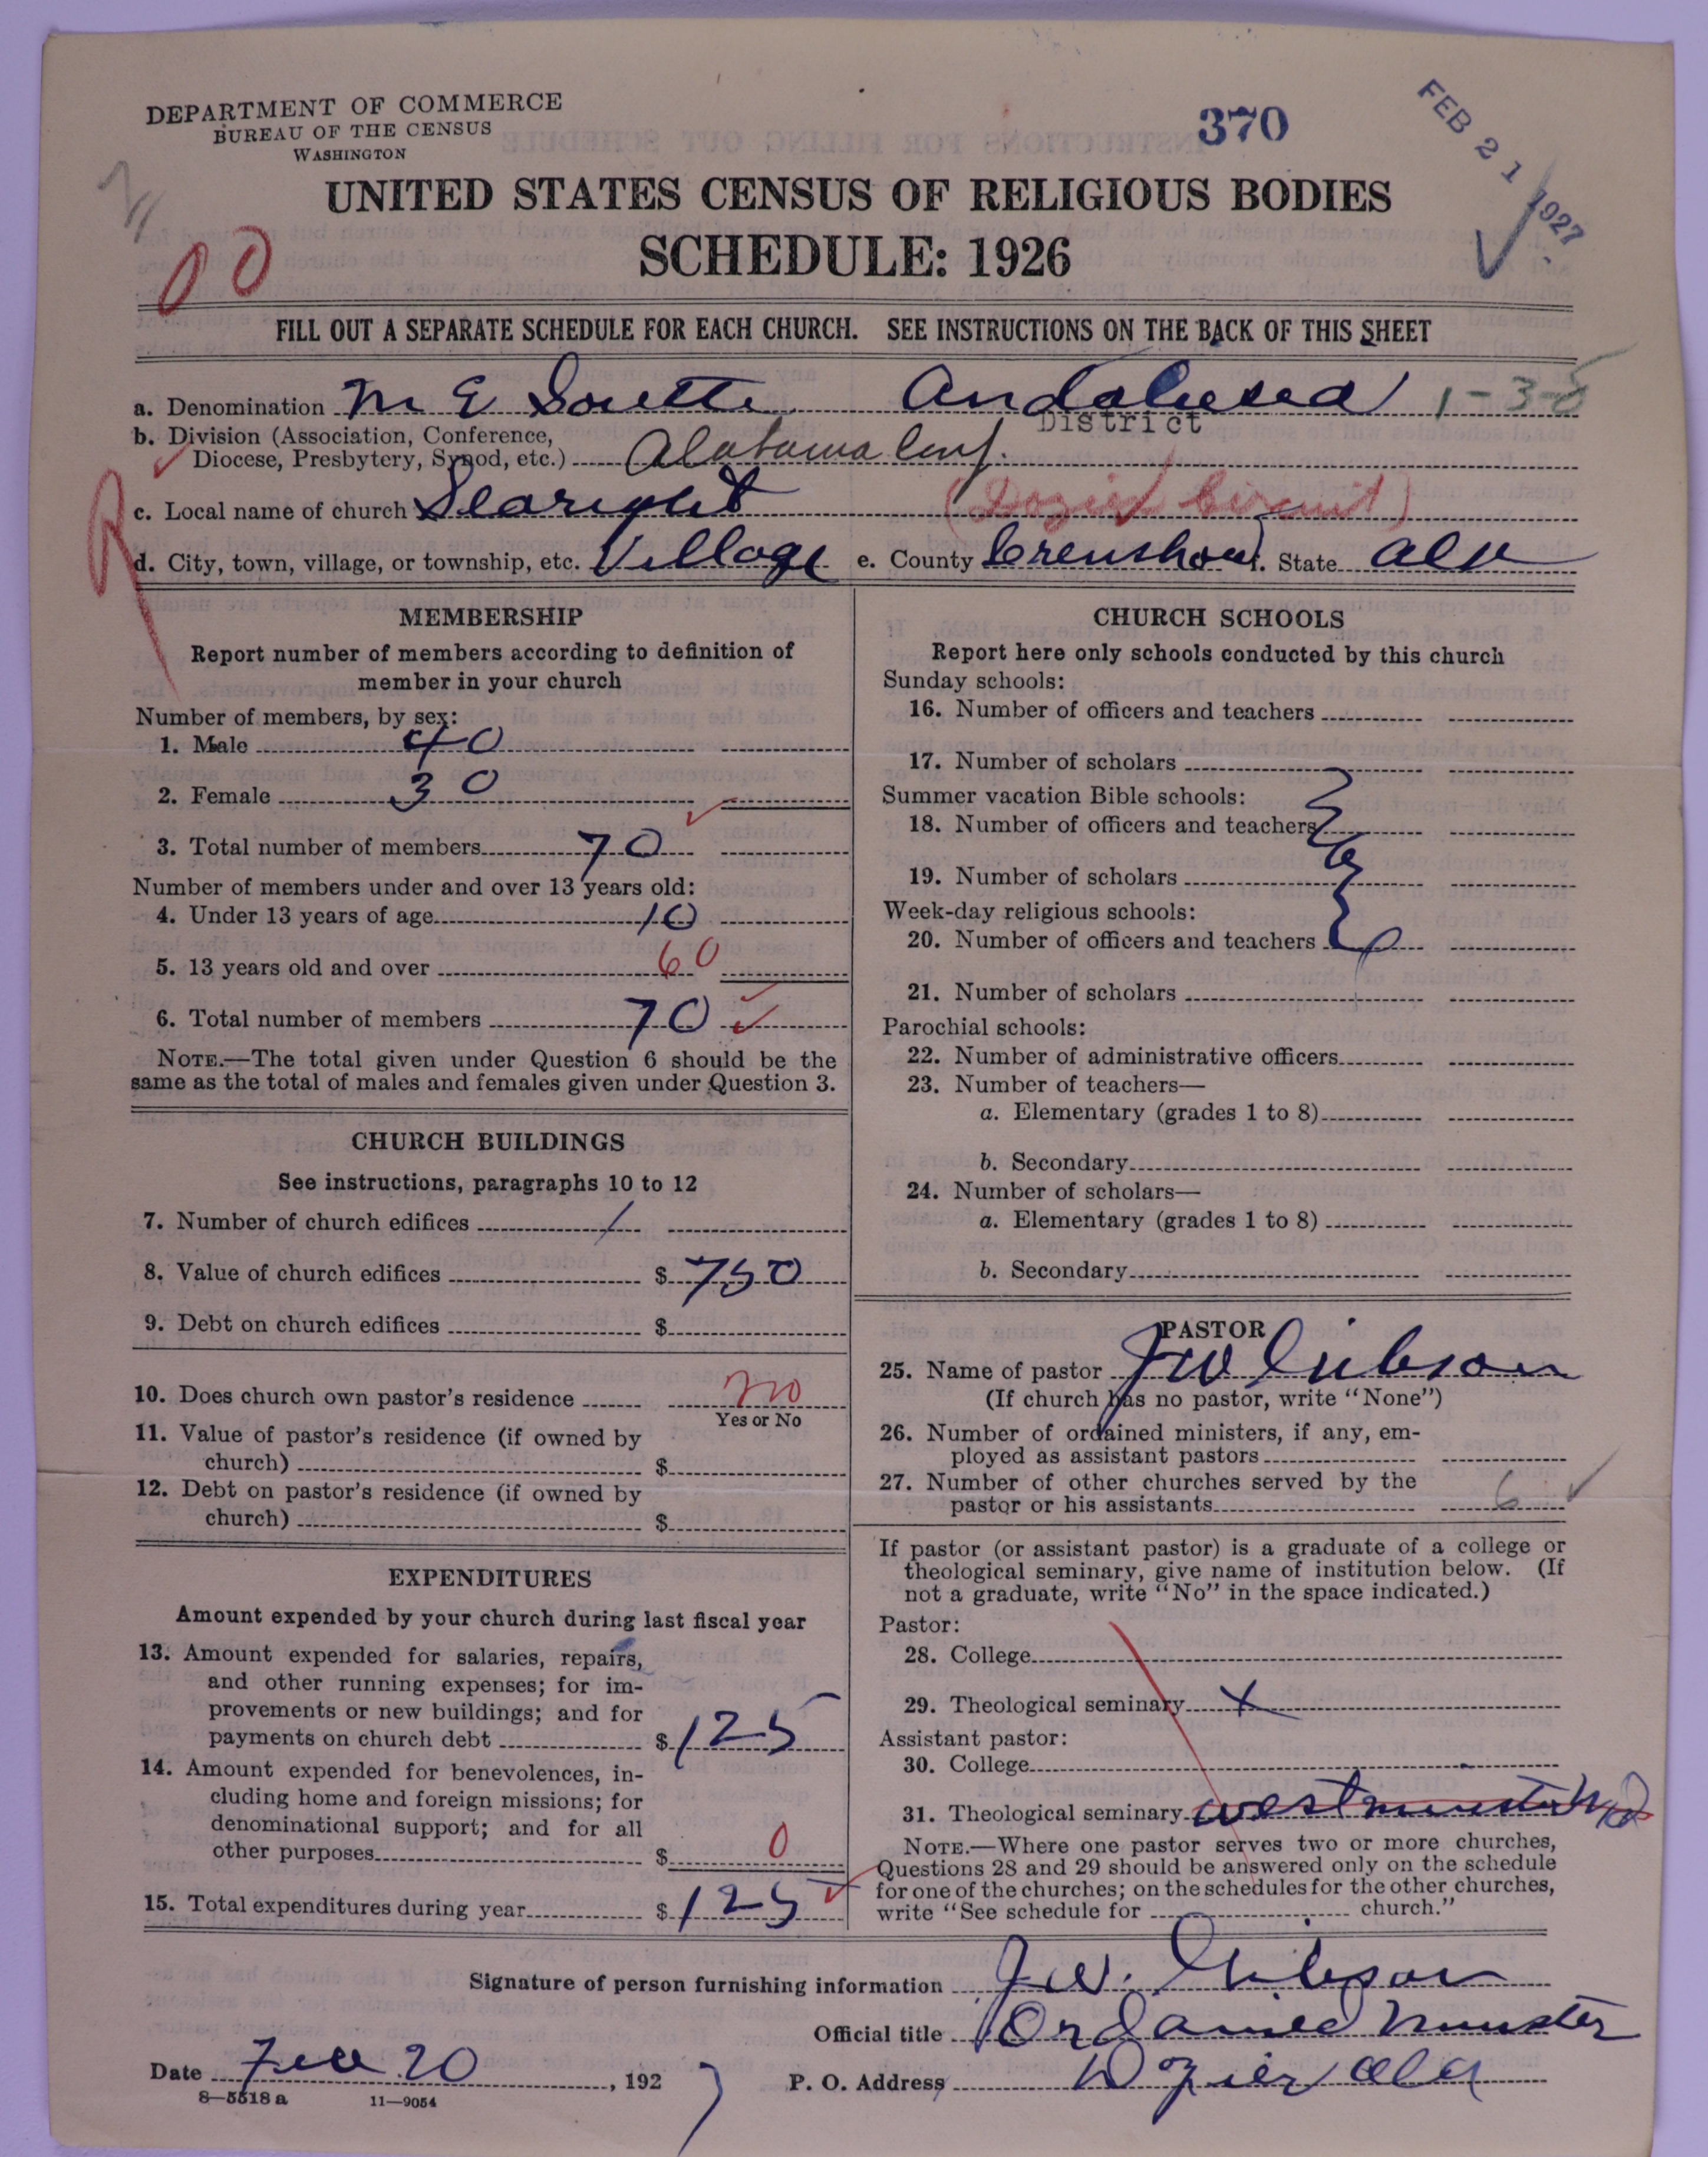 DEPARTMENT OF COMMERCE
BUREAU OF THE CENSUS
WASHINGTON
370
FEB 21 1927
UNITED STATES CENSUS OF RELIGIOUS BODIES
SCHEDULE: 1926
00
FILL OUT A SEPARATE SCHEDULE FOR EACH CHURCH. SEE INSTRUCTIONS ON THE BACK OF THIS SHEET
a. Denomination M E South Andalusia 1-3-5
District
b. Division (Association, Conference,
Diocese, Presbytery, Synod, etc.) Alabama Conf.
c. Local name of church Searight (Dozier Circuit)
d. City, town, village, or township, etc. Village e. County Crenshaw f. State Ala
MEMBERSHIP
Report number of members according to definition of
member in your church
Number of members, by sex:
1. Male 40
2. Female 30
3. Total number of members 70
Number of members under and over 13 years old:
4. Under 13 years of age 10
5. 13 years old and over 60
6. Total number of members 70
NOTE.—The total given under Question 6 should be the
same as the total of males and females given under Question 3.
CHURCH BUILDINGS
See instructions, paragraphs 10 to 12
7. Number of church edifices 1
8. Value of church edifices $750
9. Debt on church edifices $
10. Does church own pastor's residence no
Yes or No
11. Value of pastor's residence (if owned by
church) $
12. Debt on pastor's residence (if owned by
church) $
EXPENDITURES
Amount expended by your church during last fiscal year
13. Amount expended for salaries, repairs,
and other running expenses; for im-
provements or new buildings; and for
payments on church debt $125
14. Amount expended for benevolences, in-
cluding home and foreign missions; for
denominational support; and for all
other purposes $0
15. Total expenditures during year $125
CHURCH SCHOOLS
Report here only schools conducted by this church
Sunday schools:
16. Number of officers and teachers
17. Number of scholars
Summer vacation Bible schools:
18. Number of officers and teachers
19. Number of scholars
Week-day religious schools:
20. Number of officers and teachers
21. Number of scholars
Parochial schools:
22. Number of administrative officers
23. Number of teachers—
a. Elementary (grades 1 to 8)
b. Secondary
24. Number of scholars—
a. Elementary (grades 1 to 8)
b. Secondary
PASTOR
25. Name of pastor J W Gibson
(If church has no pastor, write "None")
26. Number of ordained ministers, if any, em-
ployed as assistant pastors
27. Number of other churches served by the
pastor or his assistants 6
If pastor (or assistant pastor) is a graduate of a college or
theological seminary, give name of institution below. (If
not a graduate, write "No" in the space indicated.)
Pastor:
28. College
29. Theological seminary X
Assistant pastor:
30. College
31. Theological seminary Westminster
NOTE.—Where one pastor serves two or more churches,
Questions 28 and 29 should be answered only on the schedule
for one of the churches; on the schedules for the other churches,
write "See schedule for church."
Signature of person furnishing information J.W. Gibson
Official title Ordained Minister
Date Feb 20, 1927
P. O. Address Dozier Ala
8—5518 a 11—9054